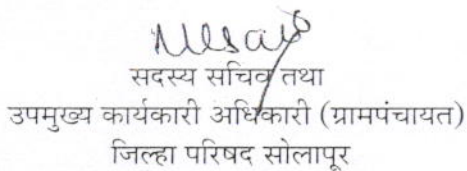 सदस्य सचिव तथा
उपमुख्य कार्यकारी अधिकारी (ग्रामपंचायत)
जिल्हा परिषद सोलापूर